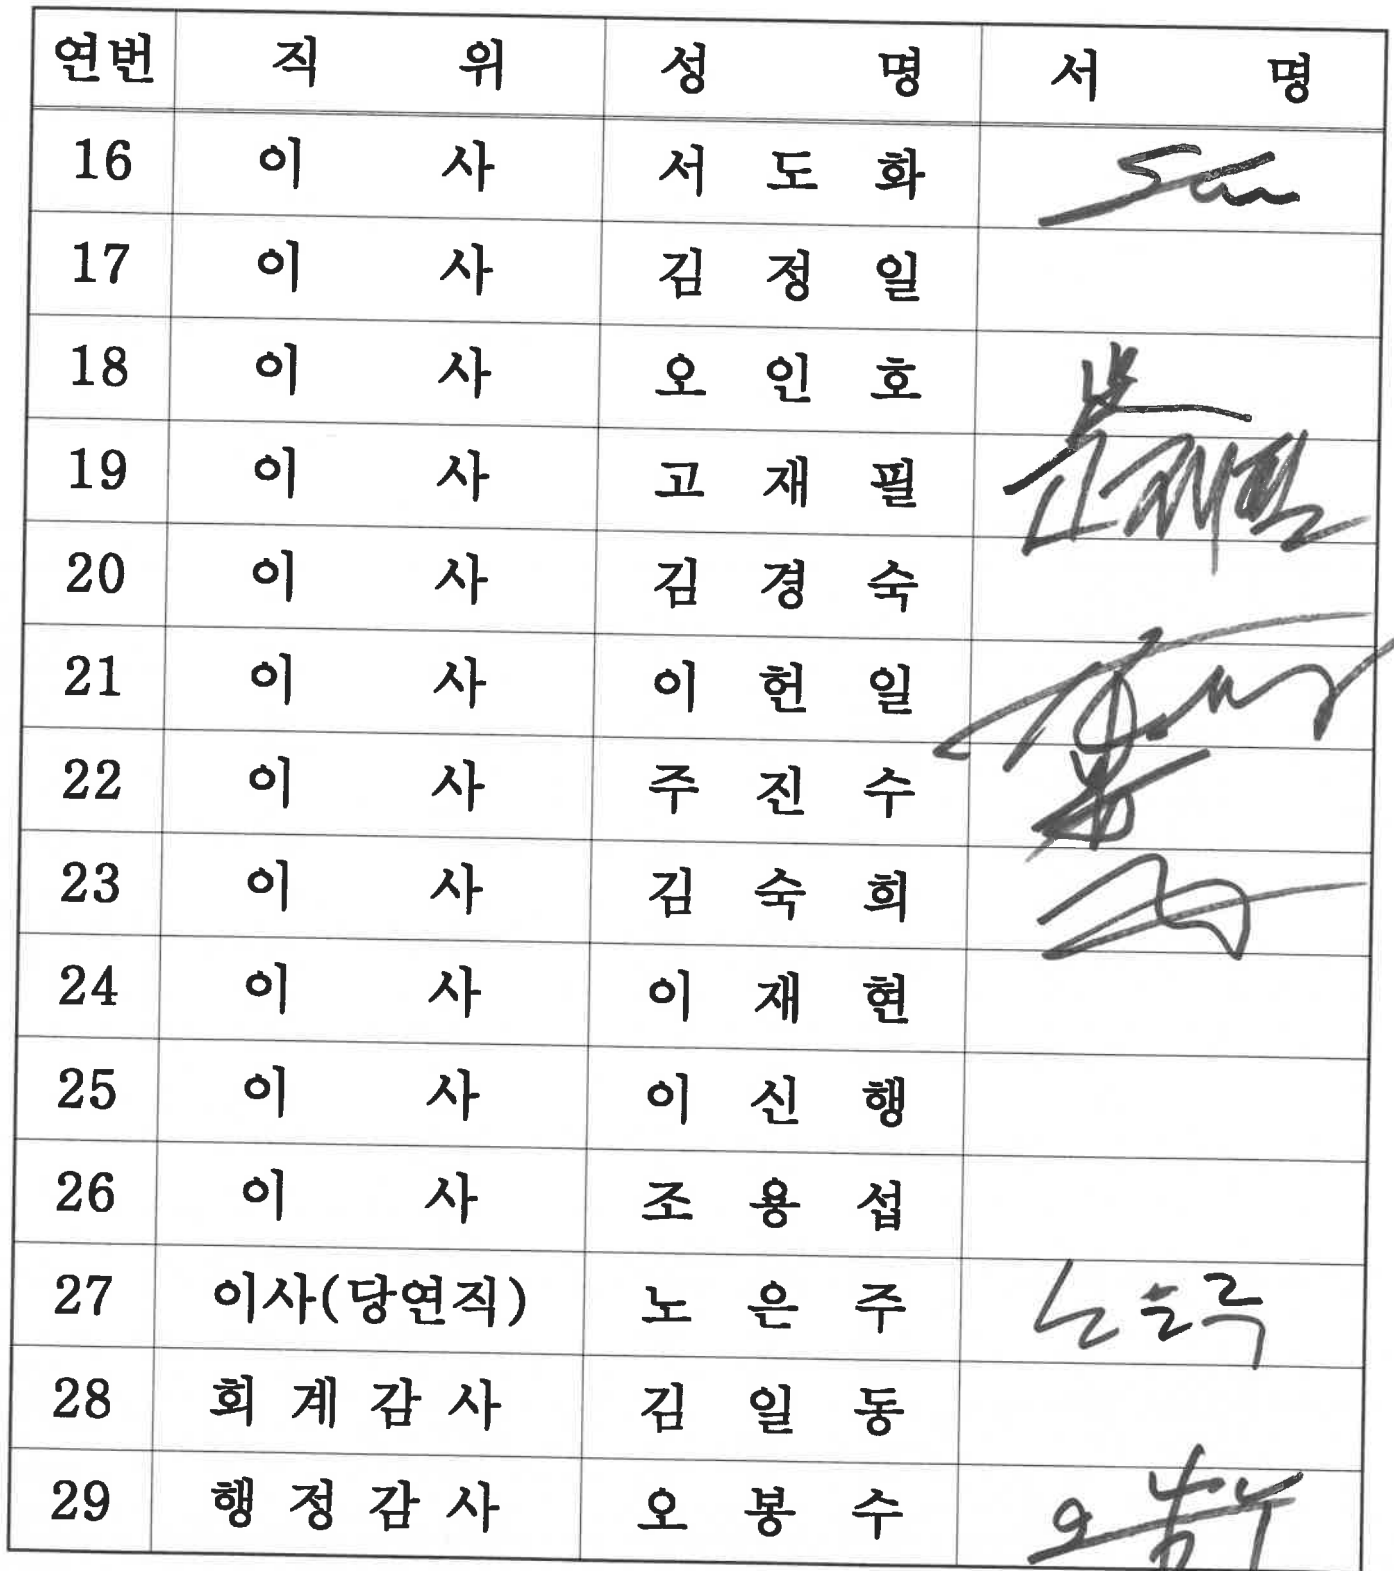 연번 직 위 성 명 서 명
16 이 사 서 도 화
17 이 사 김 정 일
18 이 사 오 인 호
19 이 사 고 재 필 고재필
20 이 사 김 경 숙
21 이 사 이 헌 일
22 이 사 주 진 수
23 이 사 김 숙 희
24 이 사 이 재 현
25 이 사 이 신 행
26 이 사 조 용 섭
27 이사(당연직) 노 은 주 노은주
28 회 계 감 사 김 일 동
29 행 정 감 사 오 봉 수 오봉수